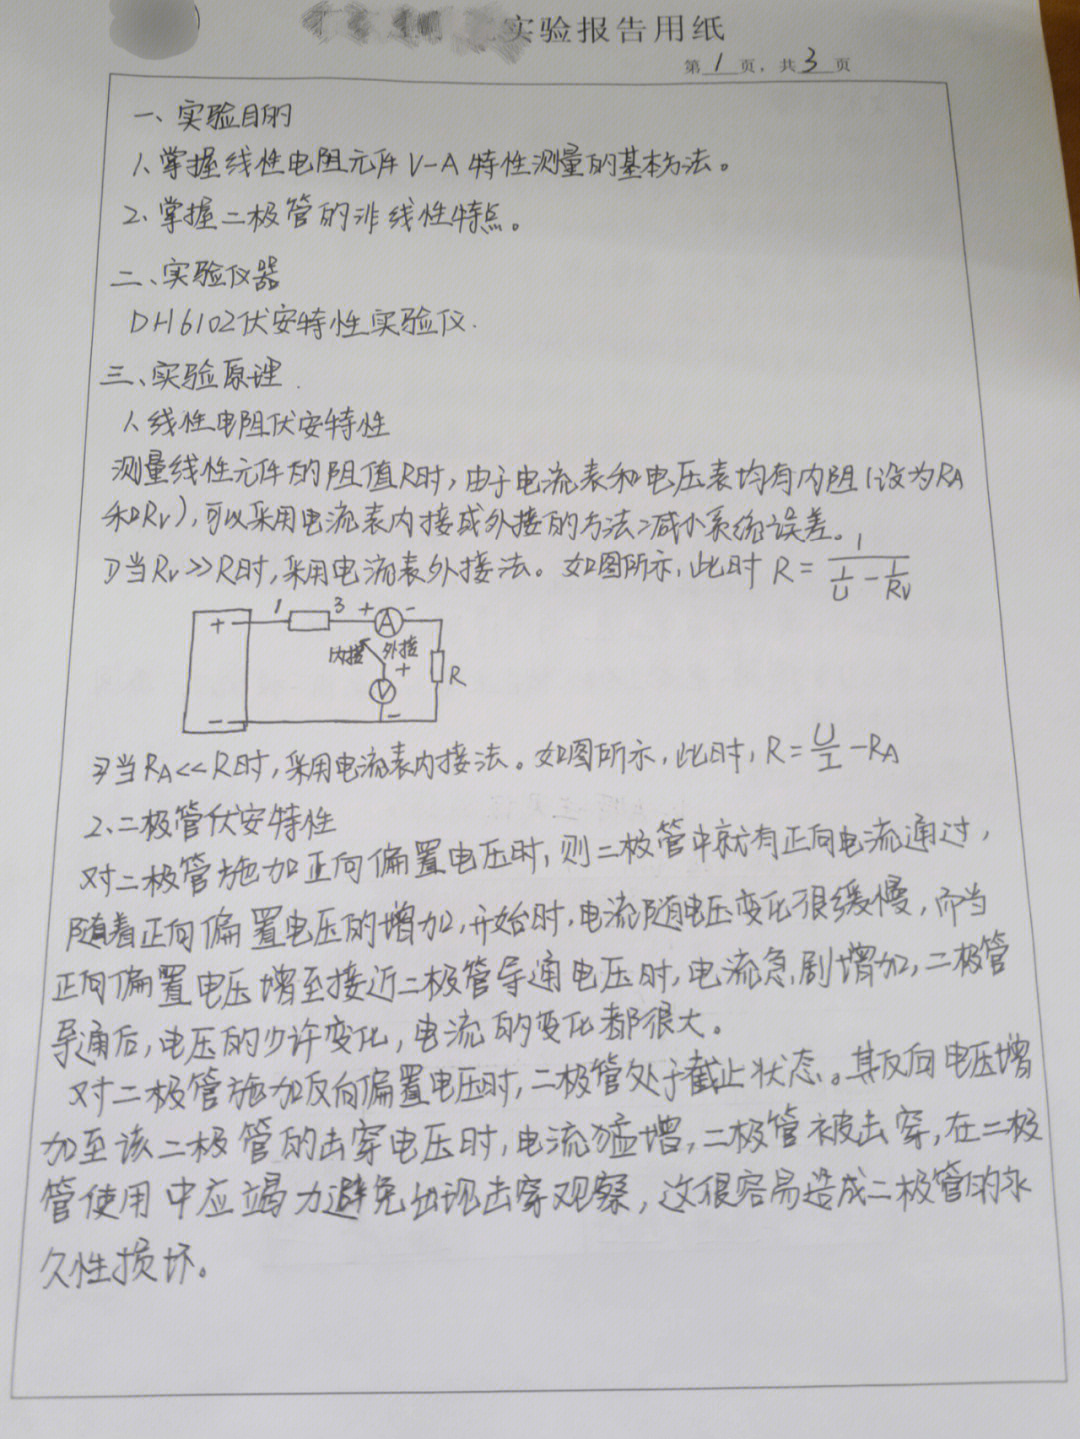 实验报告用纸
第1页,共3页
一、实验目的
1、掌握线性电阻元件V-A特性测量的基本方法。
2、掌握二极管的非线性特点。
二、实验仪器
DH6102伏安特性实验仪.
三、实验原理.
1、线性电阻伏安特性
测量线性元件的阻值R时,由于电流表和电压表均有内阻(设为RA
和RV),可以采用电流表内接或外接的方法减小系统误差。
1)当RV>>R时,采用电流表外接法。如图所示,此时 R=1/(I/U-1/RV)
1 3 + A -
+ 内接 外接
+ R
V
- -
2)当RA<<R时,采用电流表内接法。如图所示,此时,R=U/I-RA
2、二极管伏安特性
对二极管施加正向偏置电压时,则二极管中就有正向电流通过,
随着正向偏置电压的增加,开始时,电流随电压变化很缓慢,而当
正向偏置电压增至接近二极管导通电压时,电流急剧增加,二极管
导通后,电压的少许变化,电流的变化都很大。
对二极管施加反向偏置电压时,二极管处于截止状态。其反向电压增
加至该二极管的击穿电压时,电流猛增,二极管被击穿,在二极
管使用中应竭力避免出现击穿观察,这很容易造成二极管的永
久性损坏。